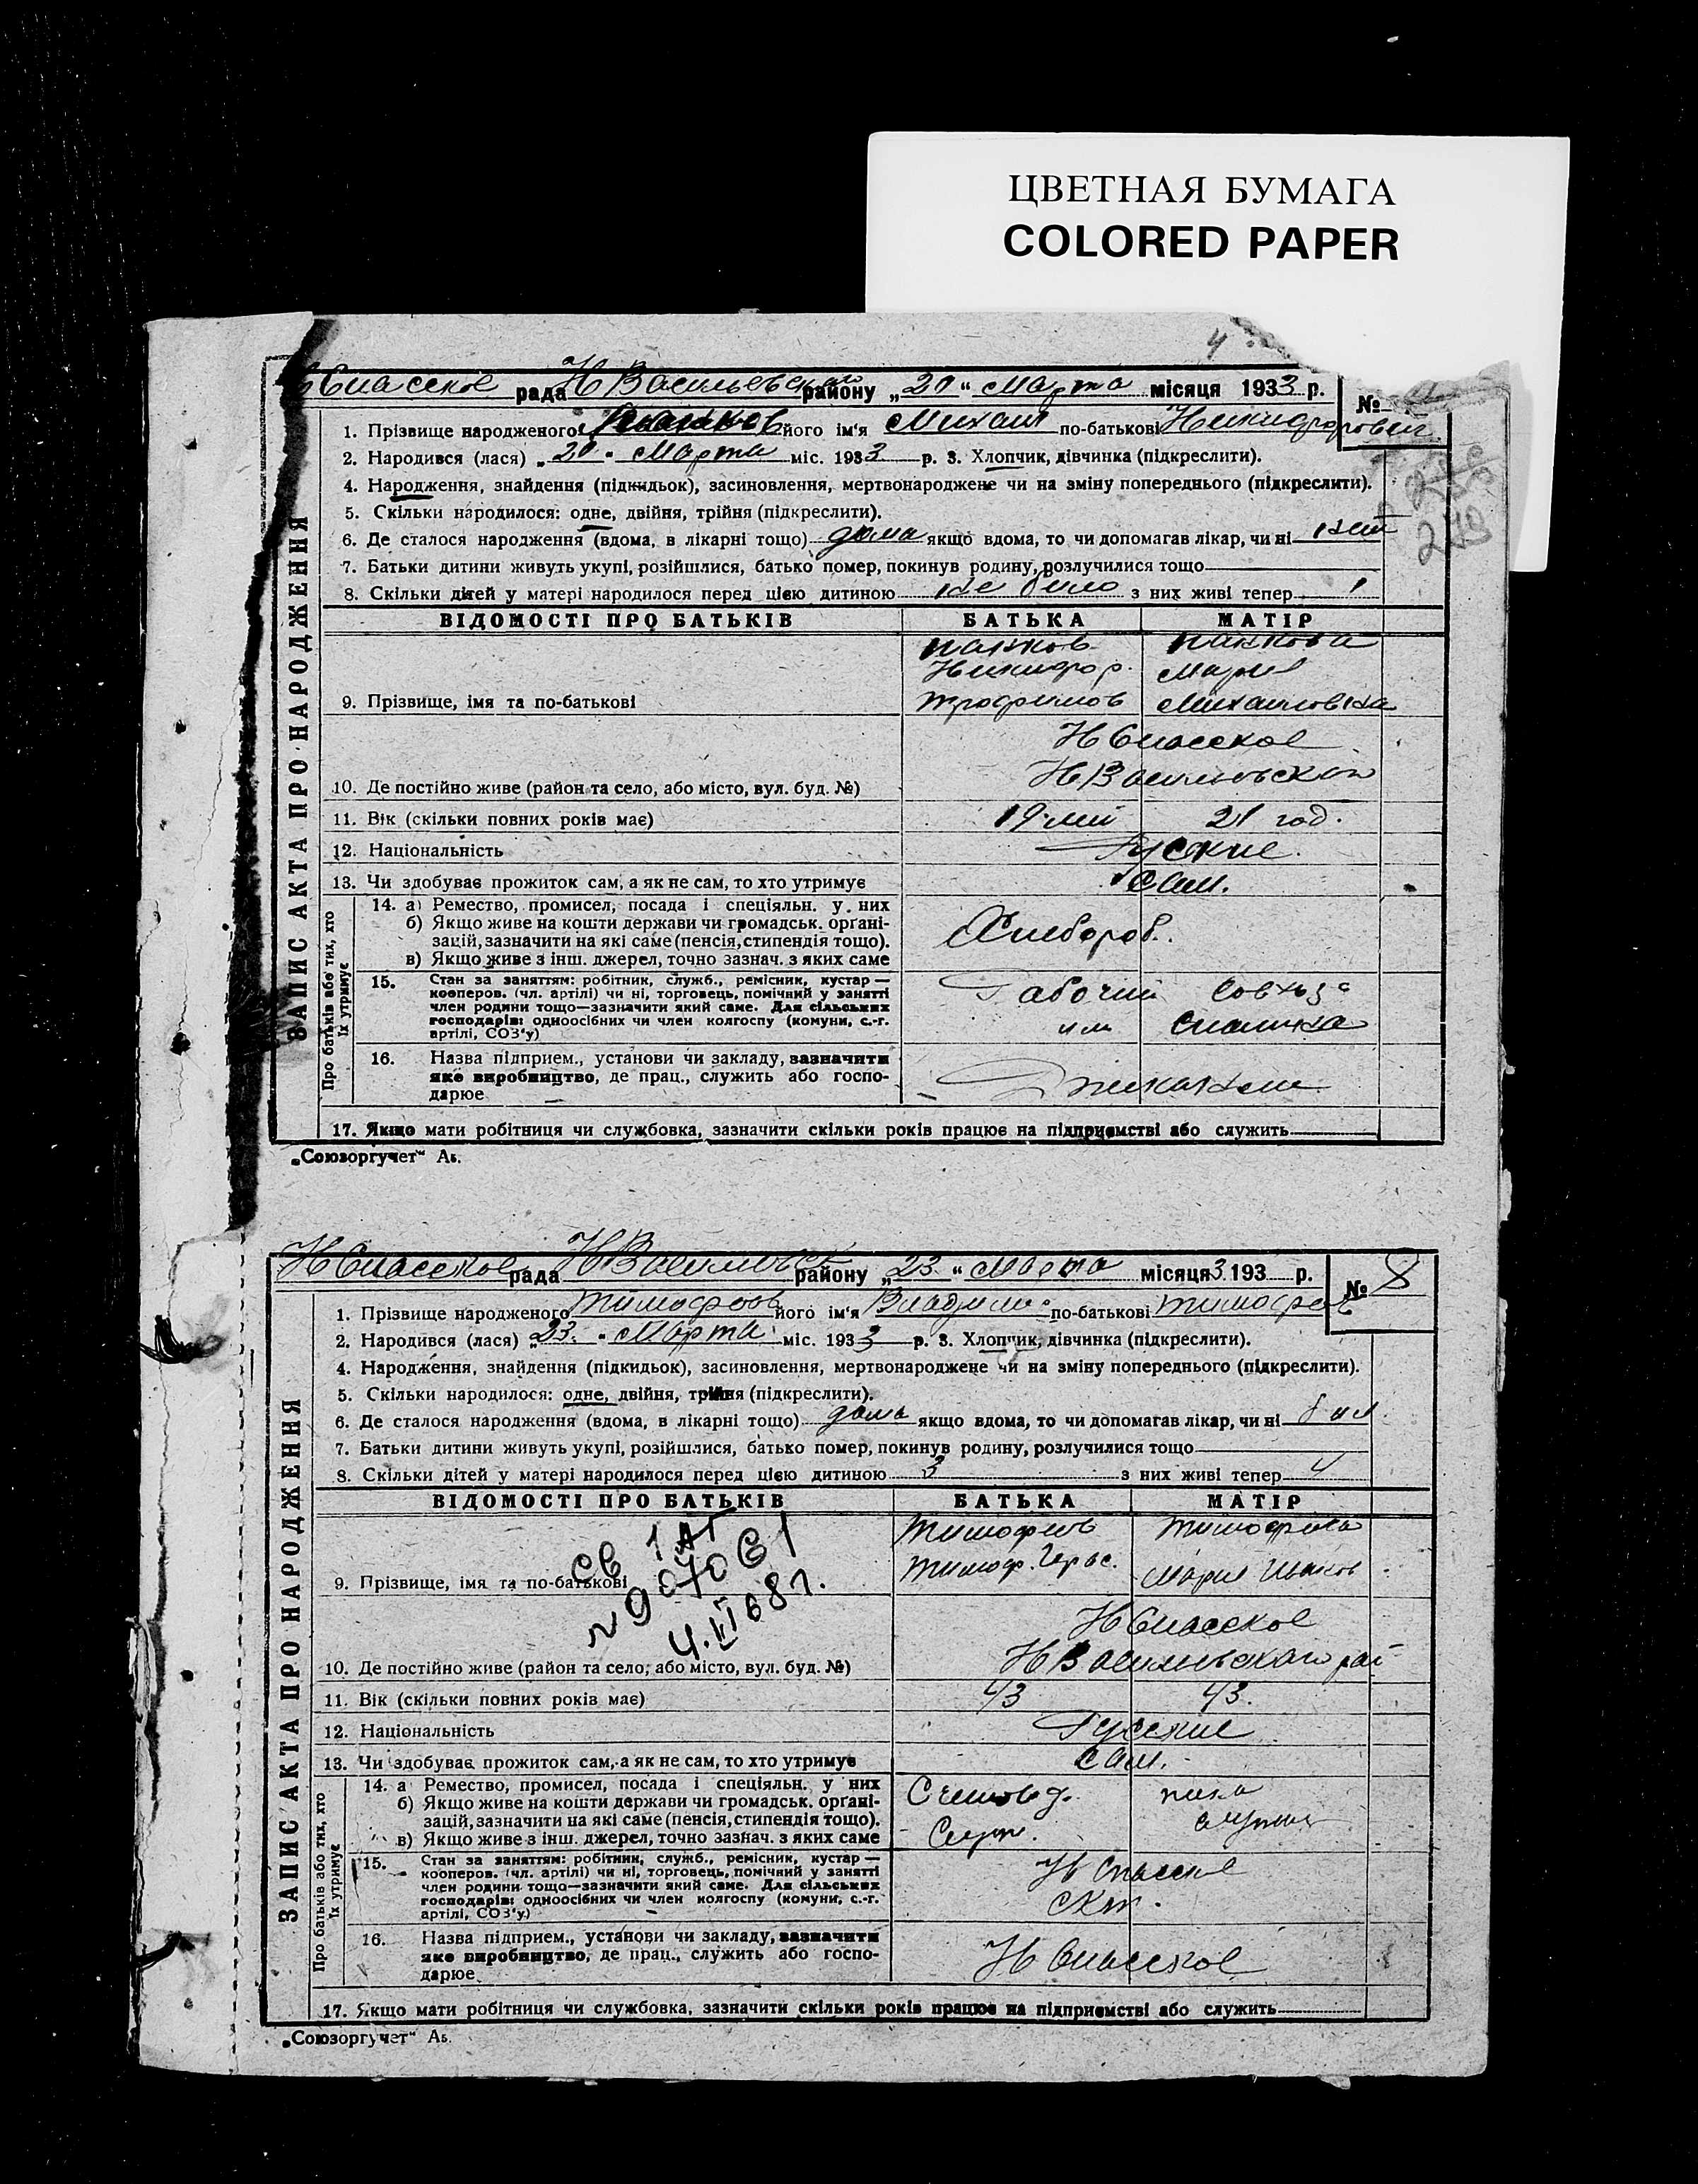 ЦВЕТНАЯ БУМАГА
COLORED PAPER
ЗАПИС АКТА ПРО НАРОДЖЕННЯ
Спасское рада Н Васильевского району „20“ Марта місяця 1933 р.
№
1. Прізвище народженого його ім'я Михаил по-батькові Никифорович
2. Народився (лася) „20“ Марта міс. 1933 р. 3. Хлопчик, дівчинка (підкреслити).
4. Народження, знайдення (підкидьок), засиновлення, мертвонароджене чи на зміну попереднього (підкреслити).
5. Скільки народилося: одне, двійня, трійня (підкреслити).
6. Де сталося народження (вдома, в лікарні тощо) дома якщо вдома, то чи допомагав лікар, чи ні
7. Батьки дитини живуть укупі, розійшлися, батько помер, покинув родину, розлучилися тощо
8. Скільки дітей у матері народилося перед цією дитиною не било з них живі тепер 1
ВІДОМОСТІ ПРО БАТЬКІВ БАТЬКА МАТІР
Панков Панкова
Никифор Мария
9. Прізвище, імя та по-батькові Трофимов Михаиловна
Н Спасское
10. Де постійно живе (район та село, або місто, вул. буд. №) Н Васильевского
11. Вік (скільки повних років має) 19 лет 21 год.
12. Національність Русские.
13. Чи здобуває прожиток сам, а як не сам, то хто утримує сам.
Про батьків або тих, хто їх утримує
14. а) Ремество, промисел, посада і спеціяльн. у них
б) Якщо живе на кошти держави чи громадськ. органі-
зацій, зазначити на які саме (пенсія, стипендія тощо).
Хлебороб.
в) Якщо живе з інш. джерел, точно зазнач. з яких саме
15. Стан за заняттям: робітник, служб., ремісник, кустар —
кооперов. (чл. артілі) чи ні, торговець, помічний у занятті
член родини тощо—зазначити який саме. Для сільських
господарів: одноосібних чи член колгоспу (комуни, с.-г.
артілі, СОЗ'у)
Рабочий Совхоза
им Сталина
16. Назва підприєм., установи чи закладу, зазначити
яке виробництво, де прац., служить або госпо-
дарює
17. Якщо мати робітниця чи службовка, зазначити скільки років працює на підприємстві або служить
„Союзоргучет“ Аь.
ЗАПИС АКТА ПРО НАРОДЖЕННЯ
Н Спасское рада Н Васильевск району „23“ Марта місяця 3 193 р.
№ 8
1. Прізвище народженого Тимофеев його ім'я Владимир по-батькові Тимофеев
2. Народився (лася) „23“ Марта міс. 1933 р. 3. Хлопчик, дівчинка (підкреслити).
4. Народження, знайдення (підкидьок), засиновлення, мертвонароджене чи на зміну попереднього (підкреслити).
5. Скільки народилося: одне, двійня, трійня (підкреслити).
6. Де сталося народження (вдома, в лікарні тощо) дома якщо вдома, то чи допомагав лікар, чи ні бил
7. Батьки дитини живуть укупі, розійшлися, батько помер, покинув родину, розлучилися тощо
8. Скільки дітей у матері народилося перед цією дитиною 3 з них живі тепер 4
ВІДОМОСТІ ПРО БАТЬКІВ БАТЬКА МАТІР
Тимофеев Тимофеева
Тимоф. Герас. Мария Иванов
9. Прізвище, імя та по-батькові
св 1АГ
№ 907061
4.VI 68 г.
Н Спасское
10. Де постійно живе (район та село, або місто, вул. буд. №) Н Васильевского рай
11. Вік (скільки повних років має) 43 43.
12. Національність Русские
13. Чи здобуває прожиток сам, а як не сам, то хто утримує сам.
Про батьків або тих, хто їх утримує
14. а Ремество, промисел, посада і спеціяльн. у них
б) Якщо живе на кошти держави чи громадськ. органі-
зацій, зазначити на які саме (пенсія, стипендія тощо).
в) Якщо живе з інш. джерел, точно зазнач. з яких саме
15. Стан за заняттям: робітник, служб., ремісник, кустар —
кооперов. (чл. артілі) чи ні, торговець, помічний у занятті
член родини тощо—зазначити який саме. Для сільських
господарів: одноосібних чи член колгоспу (комуни, с.-г.
артілі, СОЗ'у)
Н Спасское
16. Назва підприєм., установи чи закладу, зазначити
яке виробництво, де прац., служить або госпо-
дарює
Н Спасское
17. Якщо мати робітниця чи службовка, зазначити скільки років працює на підприємстві або служить
„Союзоргучет“ Аь.